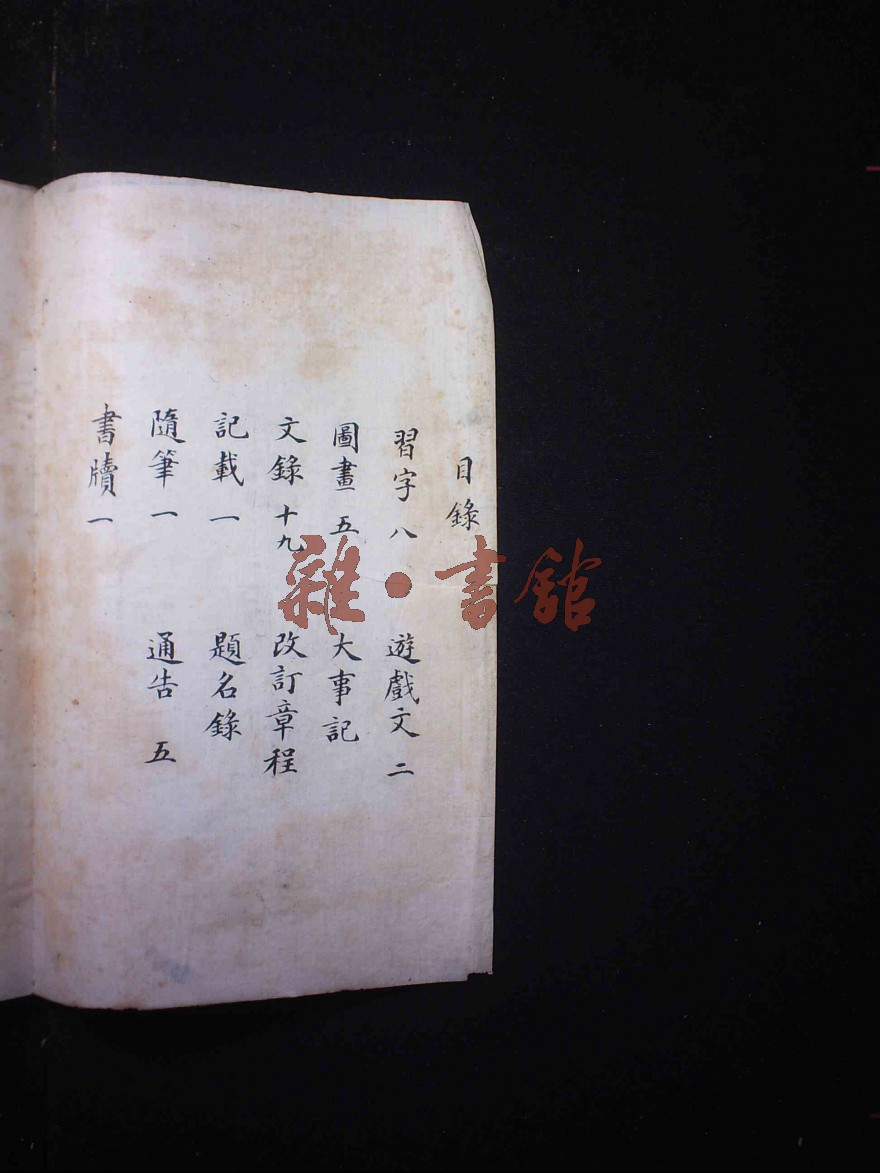 目錄
習字 八
遊戲文 二
圖畫 五
大事記
文錄 十九
改訂章程
記載 一
題名錄
隨筆 一
通告 五
書牘 一
雜·書館